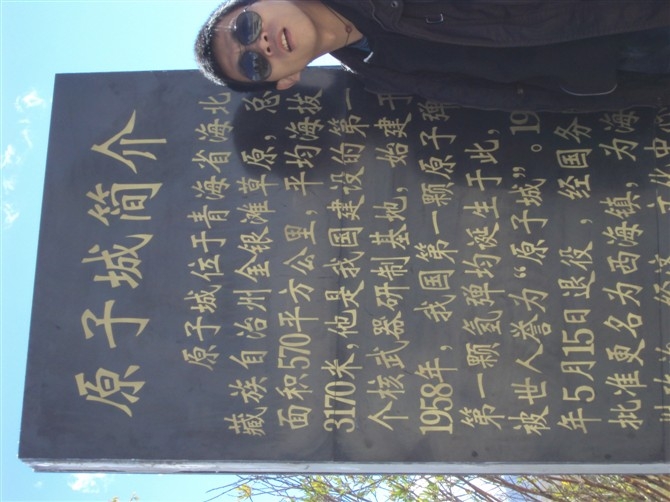 原子城简介
原子城位于青海省海北
藏族自治州金银滩草原，总
面积570平方公里，平均海拔
3170米，他是我国建设的第一
个核武器研制基地，始建于
1958年，我国第一颗原子弹
第一颗氢弹均诞生于此，
被世人誉为“原子城”。19
年5月15日退役，经国务
批准更名为西海镇，为海